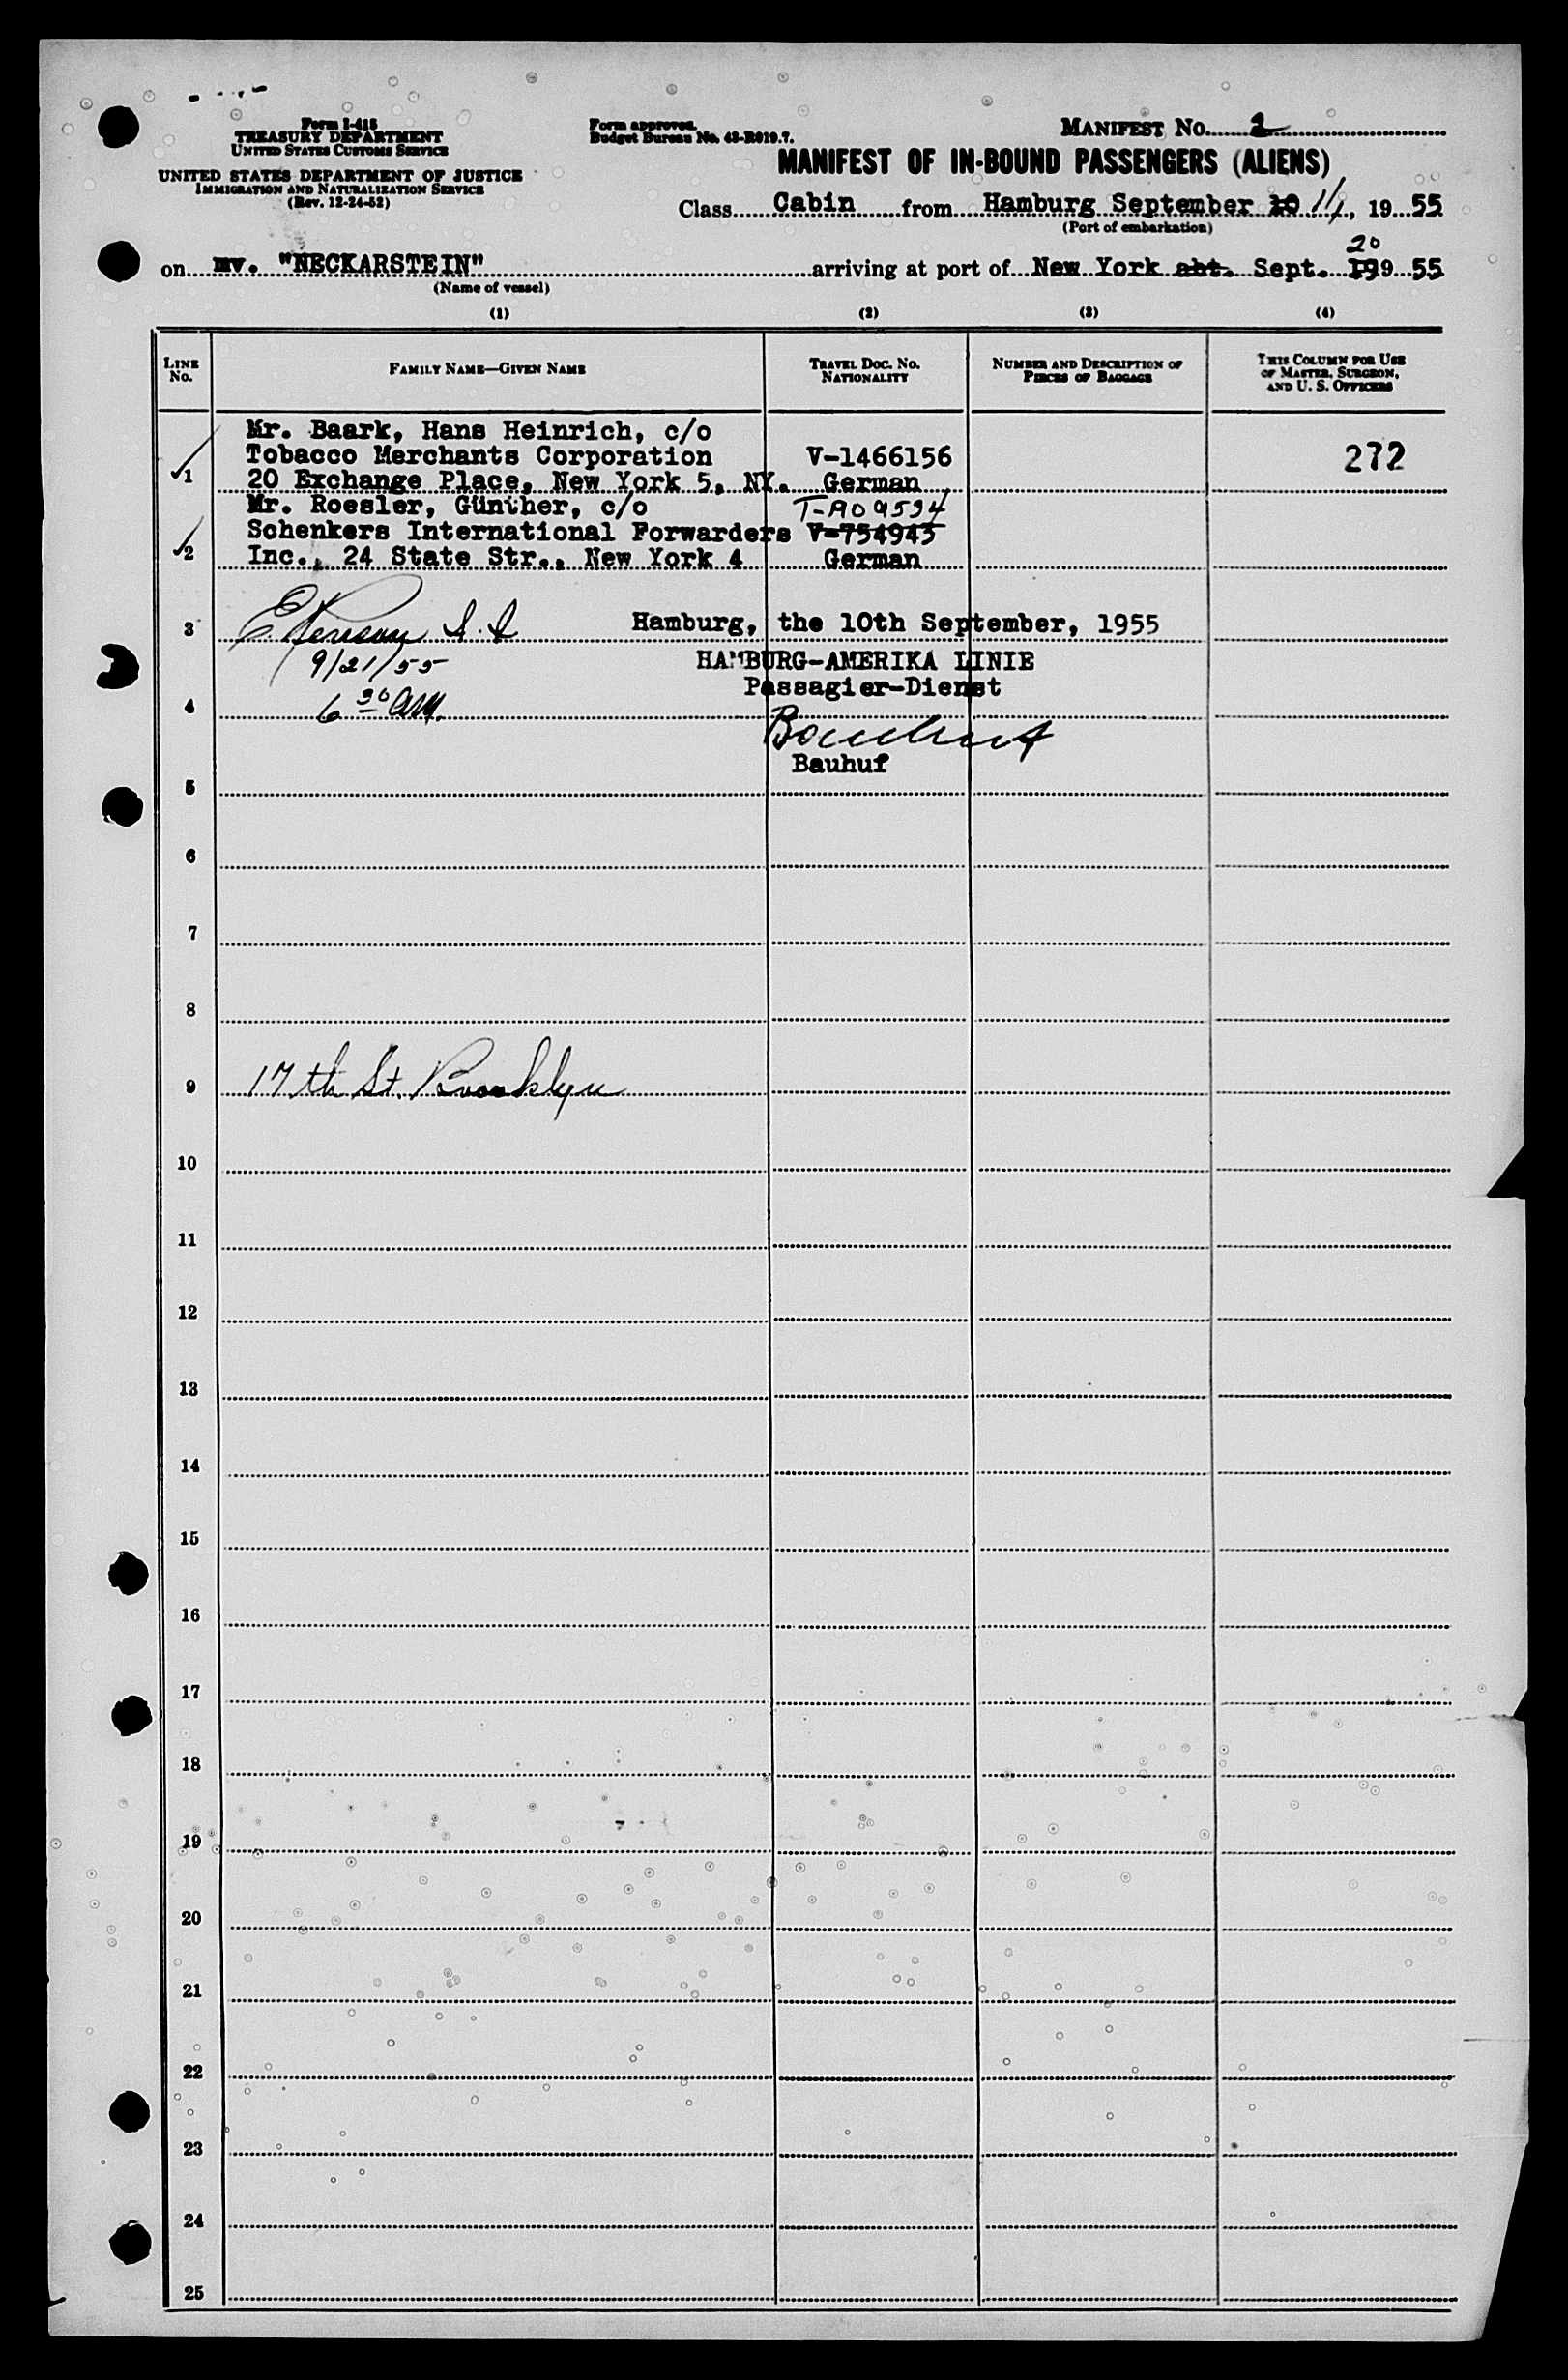 Form I-418
TREASURY DEPARTMENT
UNITED STATES CUSTOMS SERVICE
UNITED STATES DEPARTMENT OF JUSTICE
IMMIGRATION AND NATURALIZATION SERVICE
(Rev. 12-24-52)
Form approved.
Budget Bureau No. 43-R019.7.
MANIFEST NO. 2
MANIFEST OF IN-BOUND PASSENGERS (ALIENS)
Class Cabin from Hamburg September 10 11, 19 55
(Port of embarkation)
20
on mv. "NECKARSTEIN" arriving at port of New York abt. Sept. 199 55
(Name of vessel)
(1) (2) (3) (4)
LINE NO.
FAMILY NAME—GIVEN NAME
TRAVEL DOC. NO. NATIONALITY
NUMBER AND DESCRIPTION OF PIECES OF BAGGAGE
THIS COLUMN FOR USE OF MASTER, SURGEON, AND U. S. OFFICERS
Mr. Baark, Hans Heinrich, c/o
Tobacco Merchants Corporation V-1466156 272
1 20 Exchange Place, New York 5, NY. German
Mr. Roesler, Günther, c/o T-A09534
Schenkers International Forwarders V-754943
2 Inc., 24 State Str., New York 4 German
3 Hamburg, the 10th September, 1955
9/21/55 HAMBURG-AMERIKA LINIE
Passagier-Dienst
4 6 30 AM.
Bauhuf
5
6
7
8
9 17th St. Brooklyn
10
11
12
13
14
15
16
17
18
19
20
21
22
23
24
25